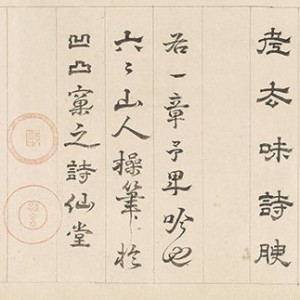 味詩腴
右一章予卑吟也
六々山人操筆於
凹凸窠之詩仙堂